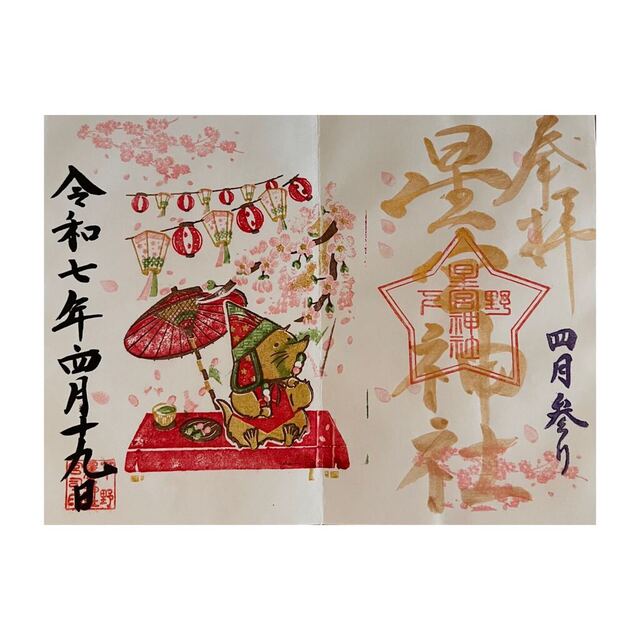 奉拝
四月参り
星宮神社
下野
星宮神社
令和七年四月十九日